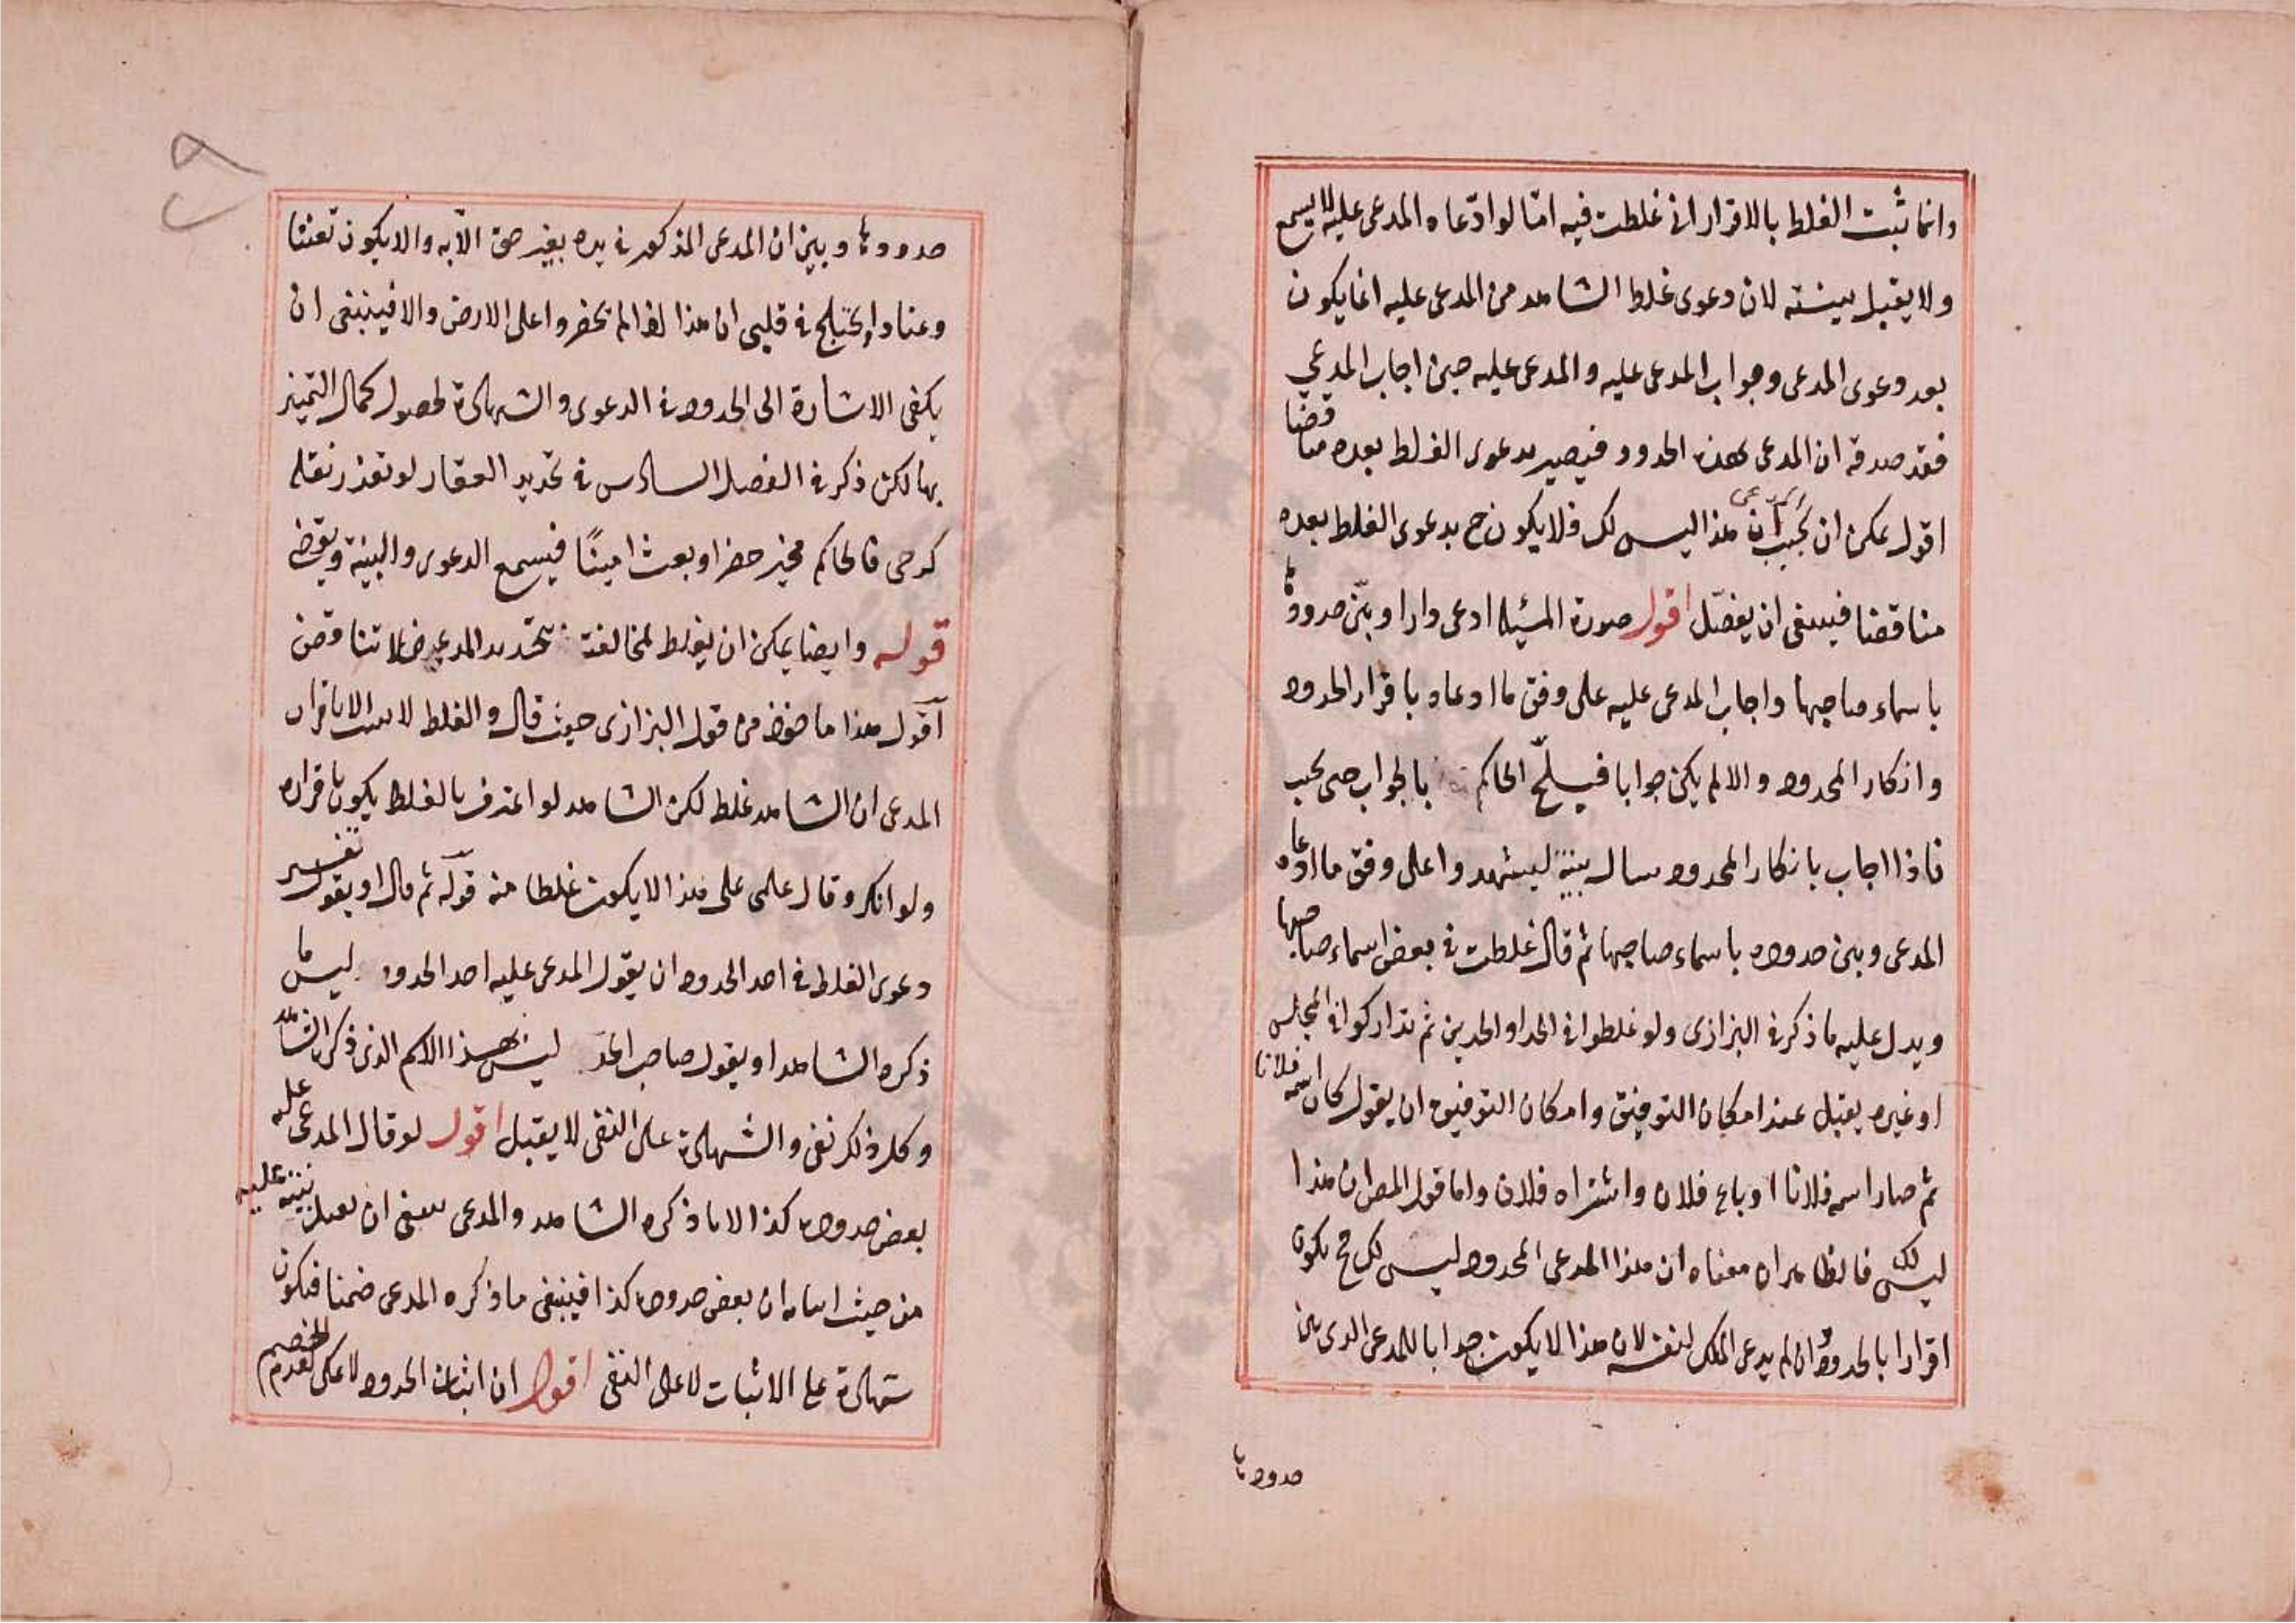 وانما ثبت الغلط بالاقرار اني غلطت فيه امّا لو ادّعاه المدعى عليه لا يسمع
ولا يقبل بينته لان دعوى غلط الشاهد من المدعى عليه انما يكون
بعد دعوى المدعى وجواب المدعى عليه والمدعى عليه حين اجاب المدعي
فقد صدقه ان المدعى بهذه الحدود فيصير بدعوى الغلط بعده مناقضا
اقول يمكن ان يجيب المدعى ان هذا ليس لك فلا يكون ح بدعوى الغلط بعده
مناقضا فينبغى ان يفصّل اقول صورة المسئلة ادعى دارا وبيّن حدودها
باسماء صاحبها واجاب المدعى عليه على وفق ما ادعاه باقرار الحدود
وانكار المحدود والا لم يكن جوابا فيلحّ الحاكم بالجواب حتى يجيب
فاذا اجاب بانكار المحدود سال بينة ليشهدوا على وفق ما ادعاه
المدعى وبين حدوده باسماء صاحبها ثم قال غلطت في بعض اسماء صاحبها
ويدل عليه ما ذكر في البزازى ولو غلطوا في الحد او الحدين ثم تداركوا في المجلس
او غيره يقبل عند امكان التوفيق وامكان التوفيق ان يقول كان اسمه فلانا
ثم صار اسمه فلانا او باع فلان واشتراه فلان واما قول المص ان هذا
ليس لك فالظاهر ان معناه ان هذا المدعى المحدود ليس لك ح يكون
اقرارا بالحدود وان لم يدعى الملك لنفسه لان هذا لا يكون جوابا للمدعى الذى بين
حدودها
حدودها وبين ان المدعى المذكور في يده بغير حق الآبه والا يكون تعنتا
وعنادا ويختلج في قلبى ان هذا اذا لم يحضروا على الارض والا فينبغى ان
يكفى الاشارة الى الحدود في الدعوى والشهادة لحصول كمال التميز
بها لكن ذكر في الفصل السادس في تحديد العقار لو تعذر نقله
كرحى فالحاكم مخير حضر او بعث امينًا فيسمع الدعوى والبينة ويقضى
قوله وايضا يمكن ان يغلط لمخالفته بتحديد المدعى فلا تناقض
اقول هذا ماخوذ من قول البزازى حيث قال والغلط لا يثبت الا باقرار
المدعى ان الشاهد غلط لكن الشاهد لو اعترف بالغلط يكون باقراره
ولو انكر وقال علمى على هذا لا يكون غلطا منه قوله ثم قال او يقول تفسير
دعوى الغلط في احد الحدود ان يقول المدعى عليه احد الحدود ليس ما
ذكره الشاهد او يقول صاحب الحد ليس بهذا الاسم الذى ذكره الشاهد
وكل ذلك نفى والشهادة على النفى لا يقبل اقول لو قال المدعى عليه
بعض حدوده كذا لا ما ذكره الشاهد والمدعى ينبغى ان يقبل بينته عليه
من حيث اثباته ان بعض حدوده كذا فينبغى ما ذكره المدعى ضمنا فيكون
شهادة على الاثبات لا على النفى اقول ان اثبات الحدود لا يمكن لعدم الخصم